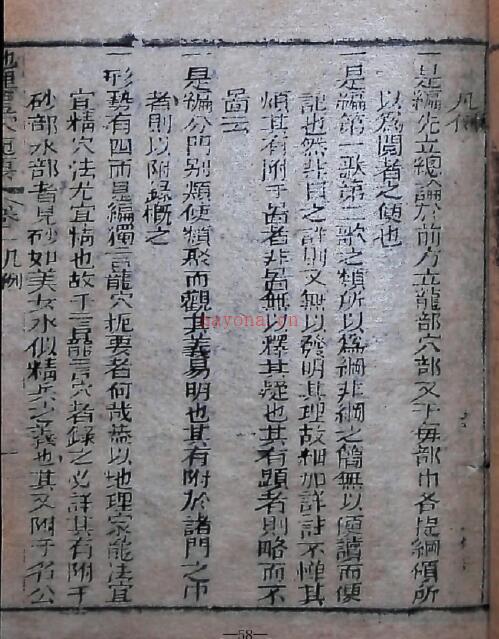 凡例
一是編先立總論於前方立龍部穴部又于每部巾各提綱領所
以為閱者之便也
一是編第一歌第二歌之類所以為綱非綱之簡無以便讀而便
記也然非目之詳則又無以發明其理故細加詳註不憚其
煩其有附于啚者非啚無以釋其疑也其有顯者則略而不
啚云
一是編分門別類使類聚而觀其義易明也其有附於諸門之巾
者則以附錄概之
一形勢有四而是編獨言龍穴扼要者何哉葢以地理家龍法宜
宜精穴法尤宜情也故于言龍言穴者錄之必詳其有附于
砂部水部者見砂如美女水似精兵之義也其又附于名公
凡例
一
hayonai.cn
—58—